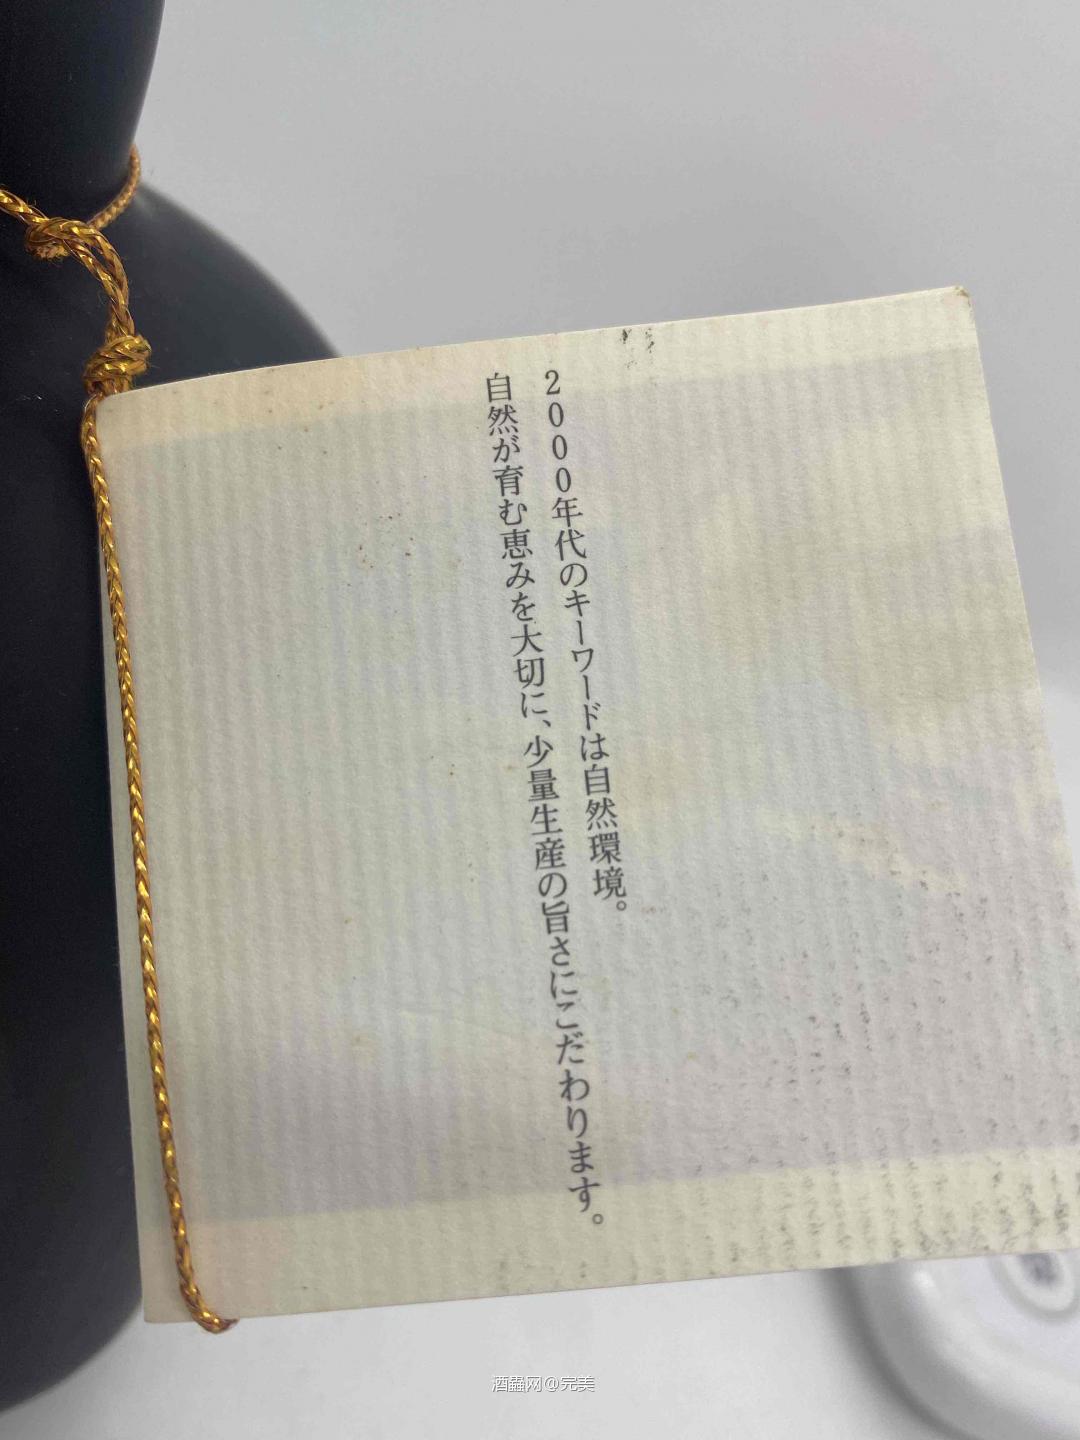 2000年代のキーワードは自然環境。
自然が育む恵みを大切に、少量生産の旨さにこだわります。
酒蟲网@完美